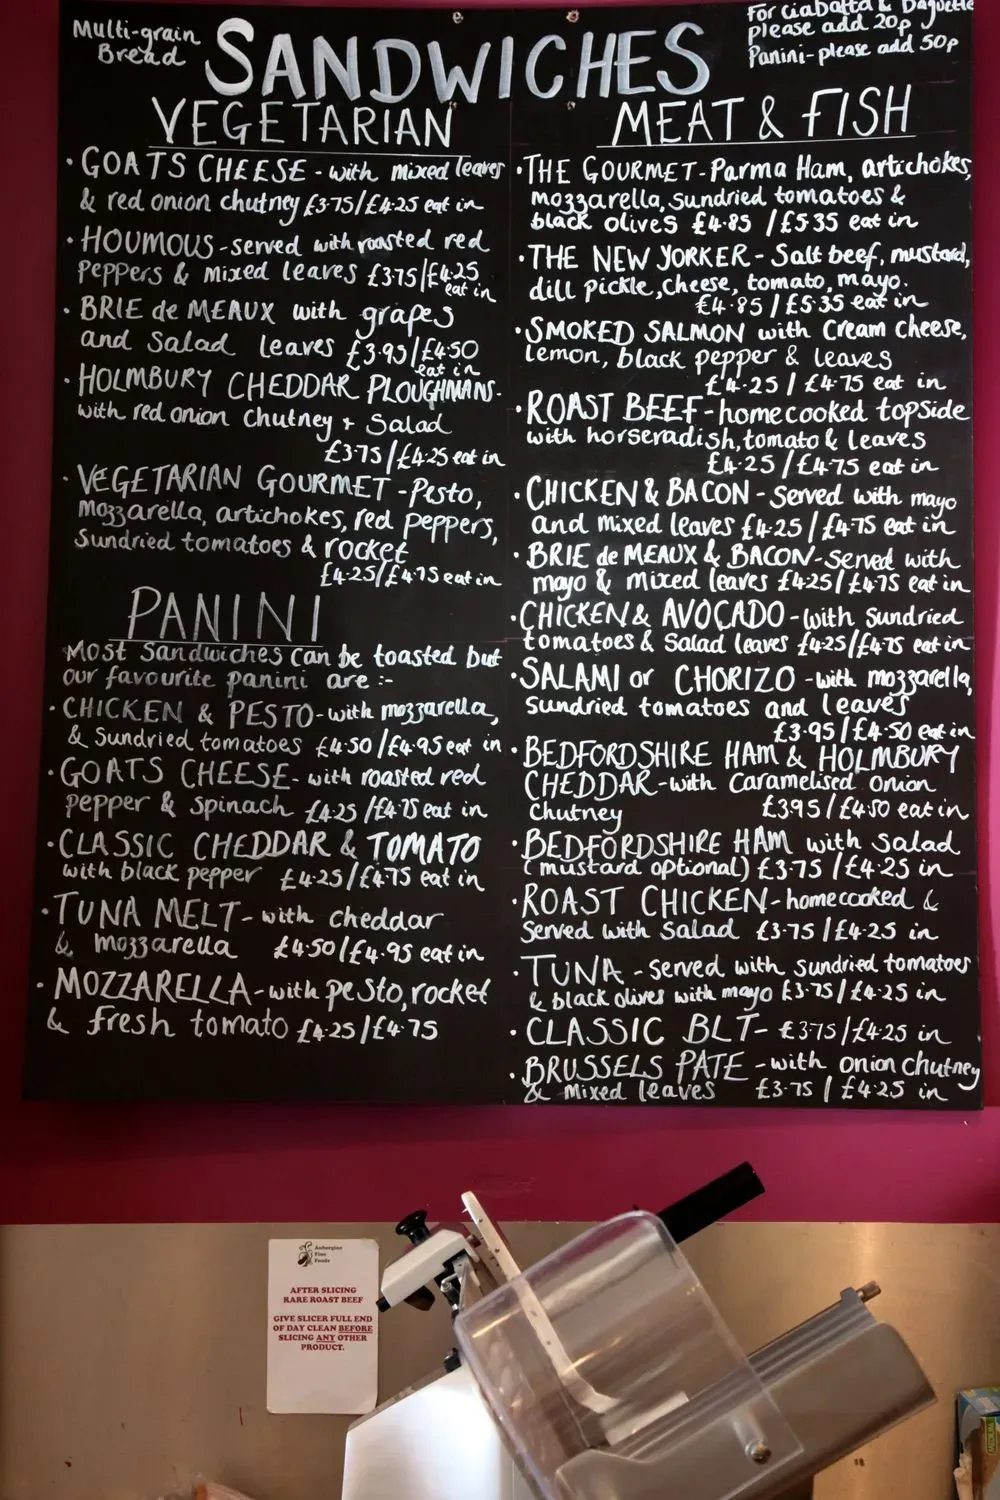 Multi-grain
Bread
SANDWICHES
For Ciabatta & Baguette
please add 20p
Panini-please add 50p
VEGETARIAN
• GOATS CHEESE - with mixed leaves
& red onion chutney £3.75/£4.25 eat in
• HOUMOUS - served with roasted red
Peppers & mixed leaves £3.75/£4.25
eat in
• BRIE de MEAUX with grapes
and Salad leaves £3.95/£4.50
eat in
• HOLMBURY CHEDDAR PLOUGHMANS-
with red onion Chutney + Salad
£3.75/£4.25 eat in
• VEGETARIAN GOURMET - Pesto,
Mozzarella, artichokes, red peppers,
Sundried tomatoes & rocket
£4.25/£4.75 eat in
PANINI
Most Sandwiches can be toasted but
our favourite panini are :-
• CHICKEN & PESTO - with mozzarella,
& Sundried tomatoes £4.50/£4.95 eat in
• GOATS CHEESE - with roasted red
pepper & spinach £4.25/£4.75 eat in
• CLASSIC CHEDDAR & TOMATO
with black pepper £4.25/£4.75 eat in
• TUNA MELT - with cheddar
& mozzarella £4.50/£4.95 eat in
• MOZZARELLA - with pesto, rocket
& fresh tomato £4.25/£4.75
MEAT & FISH
• THE GOURMET - Parma Ham, artichokes,
mozzarella, sundried tomatoes &
black olives £4.85 /£5.35 eat in
• THE NEW YORKER - Salt beef, mustard,
dill pickle, cheese, tomato, mayo.
£4.85/£5.35 eat in
• SMOKED SALMON with Cream cheese,
lemon, black pepper & leaves
£4.25 / £4.75 eat in
• ROAST BEEF - homecooked topside
with horseradish, tomato & leaves
£4.25 /£4.75 eat in
• CHICKEN & BACON - Served with mayo
and mixed leaves £4.25/£4.75 eat in
• BRIE de MEAUX & BACON - Served with
mayo & mixed leaves £4.25/£4.75 eat in
• CHICKEN & AVOCADO - with Sundried
tomatoes & Salad leaves £4.25/£4.75 eat in
• SALAMI or CHORIZO - with mozzarella,
Sundried tomatoes and leaves
£3.95/£4.50 eat in
• BEDFORDSHIRE HAM & HOLMBURY
CHEDDAR - with Caramelised Onion
Chutney £3.95/£4.50 eat in
• BEDFORDSHIRE HAM with Salad
(mustard optional) £3.75 /£4.25 in
• ROAST CHICKEN - homecooked &
Served with Salad £3.75 /£4.25 in
• TUNA - Served with Sundried tomatoes
& black olives with mayo £3.75/£4.25 in
• CLASSIC BLT - £3.75/£4.25 in
• BRUSSELS PATE - with onion chutney
& Mixed leaves £3.75 / £4.25 in
Aubergine
Fine
Foods
AFTER SLICING
RARE ROAST BEEF
GIVE SLICER FULL END
OF DAY CLEAN BEFORE
SLICING ANY OTHER
PRODUCT.